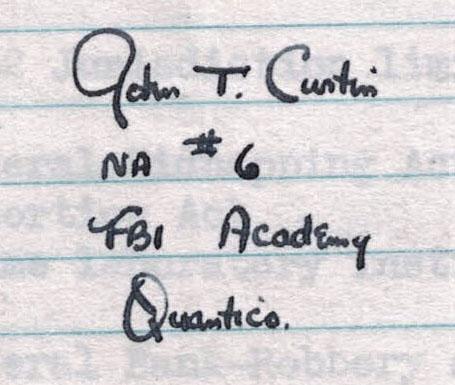 John T. Curtin
NA # 6
FBI Academy
Quantico.